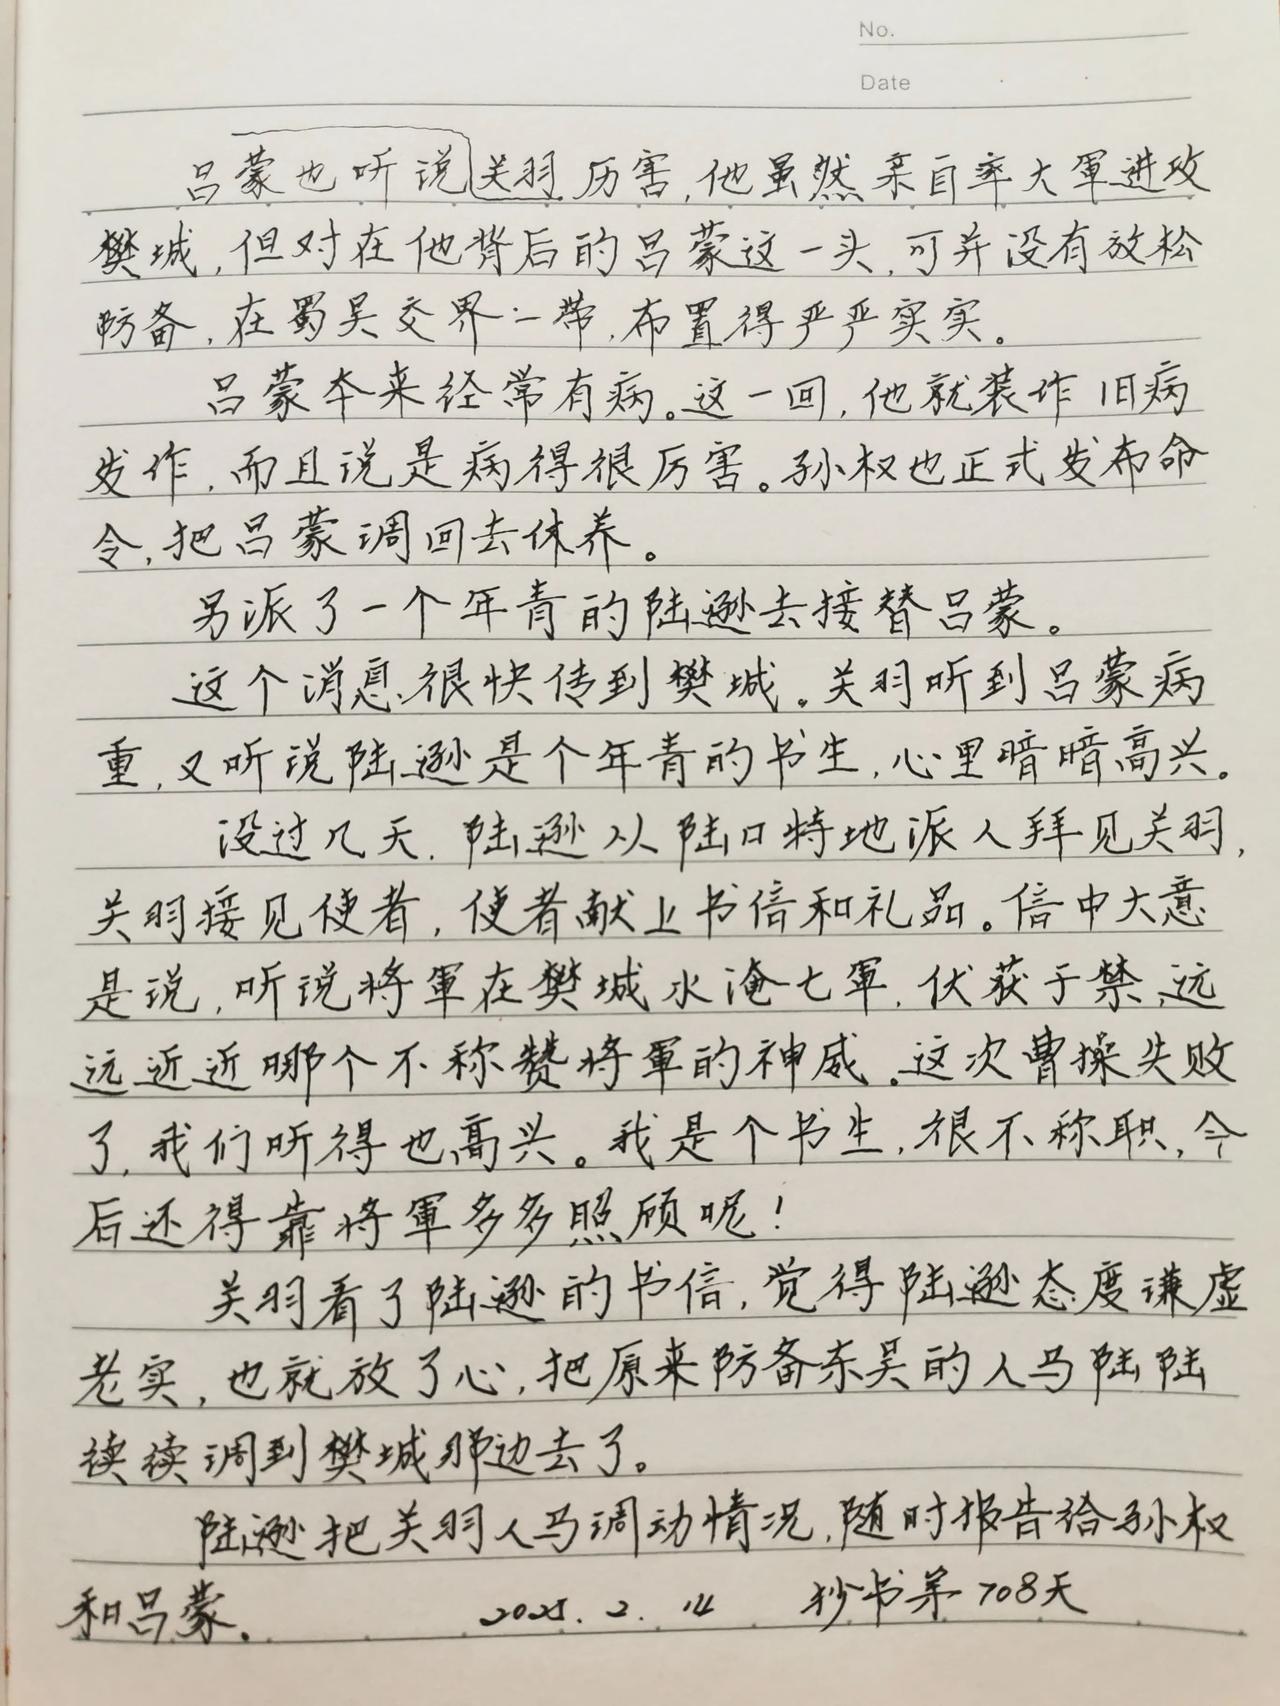 No.
Date
吕蒙也听说关羽厉害,他虽然亲自率大軍进攻
樊城,但对在他背后的吕蒙这一头,可并没有放松
防备,在蜀吴交界一带,布置得严严实实。
吕蒙本来经常有病。这一回,他就装作旧病
发作,而且说是病得很厉害。孙权也正式发布命
令,把吕蒙调回去休养。
另派了一个年青的陆逊去接替吕蒙。
这个消息很快传到樊城。关羽听到吕蒙病
重,又听说陆逊是个年青的书生,心里暗暗高兴。
没过几天,陆逊从陆口特地派人拜见关羽,
关羽接见使者,使者献上书信和礼品。信中大意
是说,听说将軍在樊城水淹七軍,伏获于禁,远
远近近哪个不称赞将軍的神威。这次曹操失败
了,我们听得也高兴。我是个书生,很不称职,今
后还得靠将軍多多照顾呢!
关羽看了陆逊的书信,觉得陆逊态度谦虚
老实,也就放了心,把原来防备东吴的人马陆陆
续续调到樊城那边去了。
陆逊把关羽人马调动情况,随时报告给孙权
和吕蒙。 2025.2.14 抄书第708天